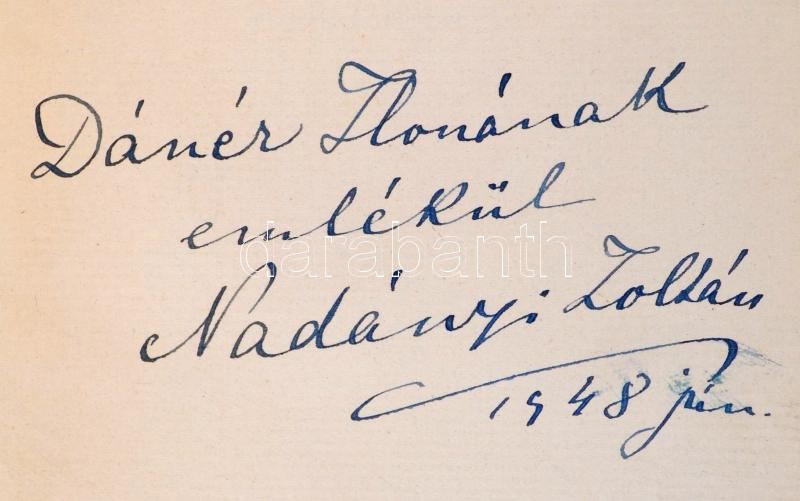 Dánér Ilonának
emlékül
darabanth
Nadányi Zoltán
1948 jún.